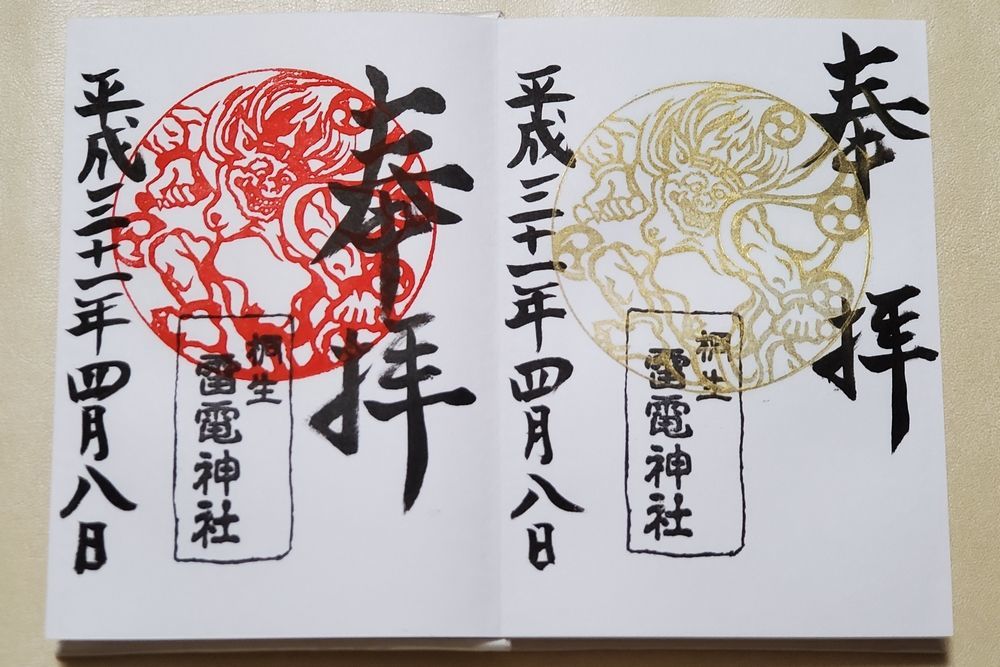 奉拝
桐生
雷電神社
平成三十一年四月八日
奉拝
桐生
雷電神社
平成三十一年四月八日